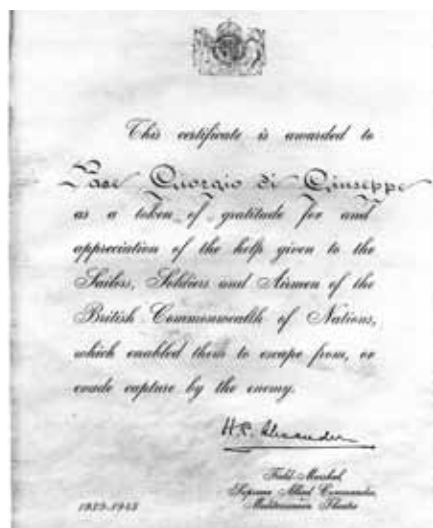 This certificate is awarded to
Pase Giorgio di Giuseppe
as a token of gratitude for and
appreciation of the help given to the
Sailors, Soldiers and Airmen of the
British Commonwealth of Nations,
which enabled them to escape from, or
evade capture by the enemy.
H.R. Alexander
Field-Marshal,
Supreme Allied Commander,
Mediterranean Theatre
1939-1945